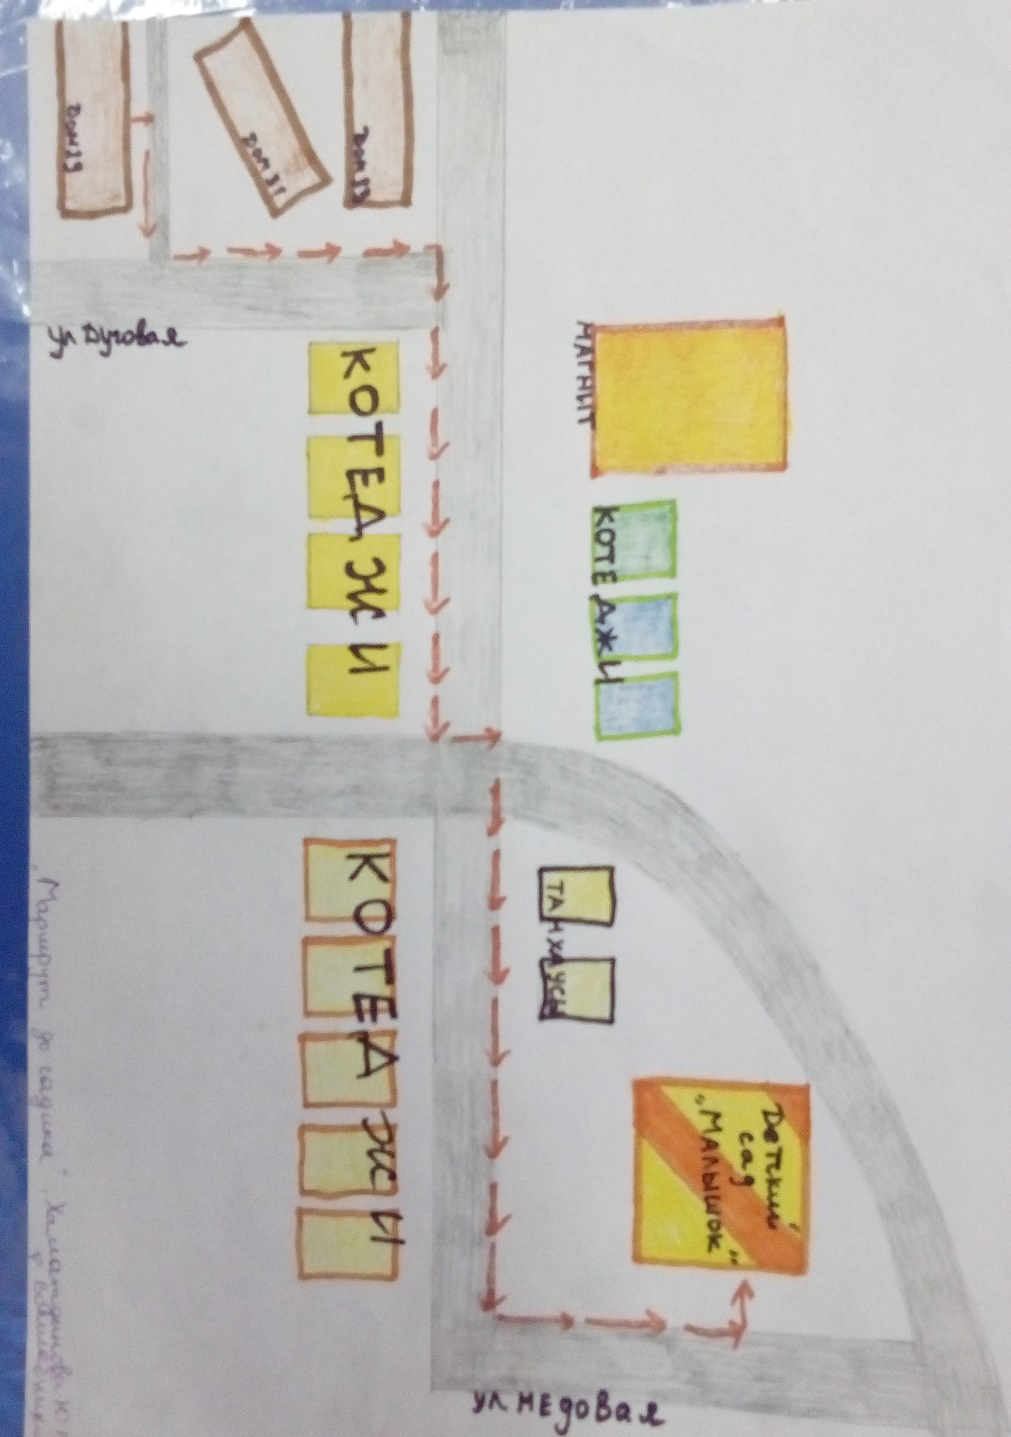 Дом 29
Дом 31
Дом 33
ул Луговая
МАГНИТ
КОТЕДЖИ
КОТЕДЖИ
КОТЕДЖИ
ТАНХАУСЫ
Детский
сад
"Малышок"
ул МЕдовая
"Маршрут до садика"